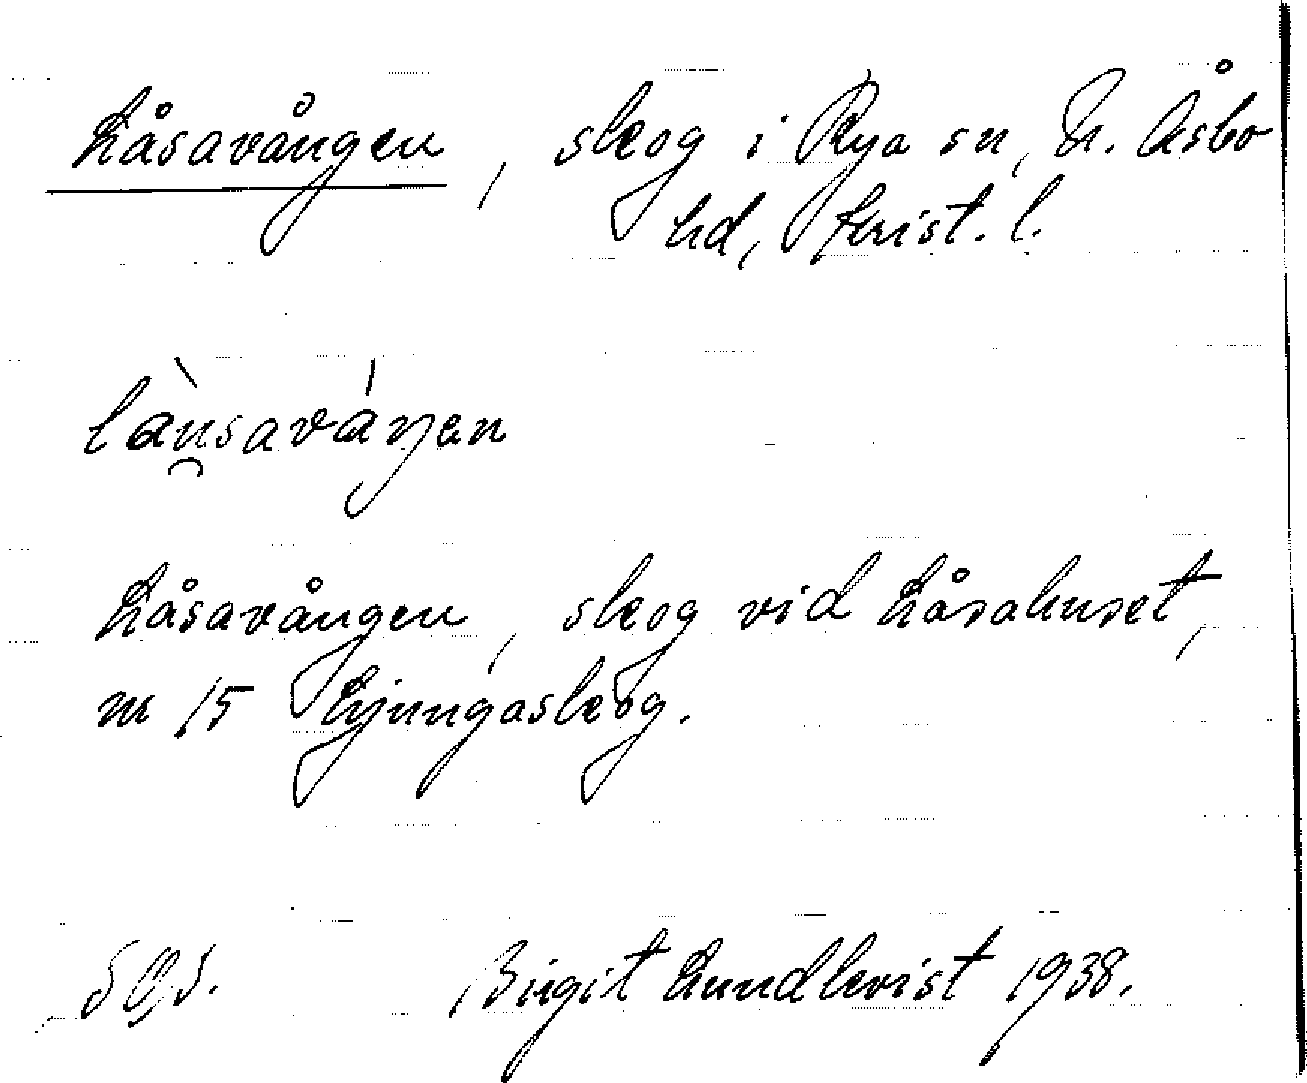 Låsavången, skog i Rya sn, N. Åsbo
hd, Krist. l.
làu̯saváŋen
Låsavången, skog vid Låsahuset,
nr 15 Ljungaskog.
Birgit Lundkvist 1938.